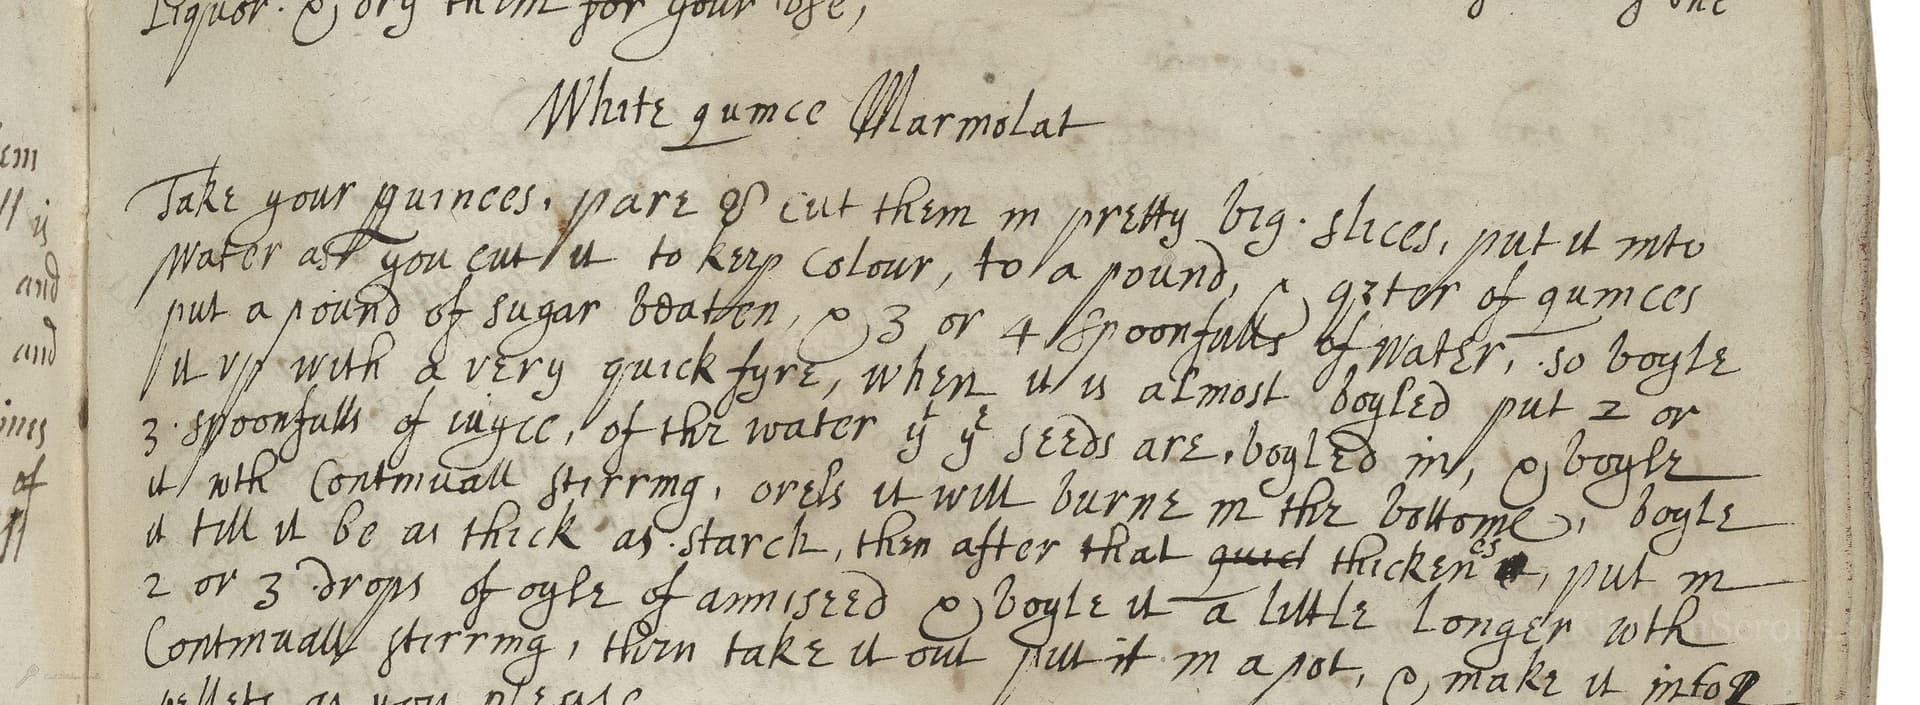 Liquor. & dry them for your use,
one
White quince Marmolat
Take your quinces, pare & cut them in pretty big. slices, put it into
water as you cut it to keep Colour, to a pound, & qrter of quinces
put a pound of sugar beaten, & 3 or 4 spoonfulls of water, so boyle
it vp with a very quick fyre, when it is almost boyled put 2 or
3. spoonfulls of iuyce, of the water yt ye seeds are boyled in, & boyle
it wth Continuall stirring, orels it will burne in the bottome, boyle
it till it be as thick as starch, then after that quid thickenes, put in
2 or 3 drops of oyle of anniseed & boyle it a little Longer wth
Continuall stirring, then take it out put it in a pot, & make it into
pellets as you please
em
ll is
and
and
of